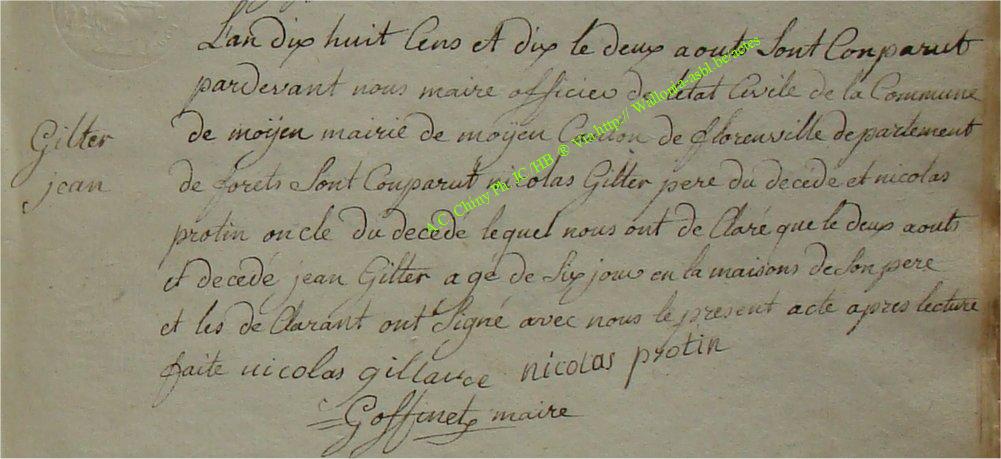 L'an dix huit Cens et dix le deux aout Sont Conparut
pardevant nous maire officier de l'état Civile de la Commune
de moÿen mairie de moÿen Canton de florenville departement
de forets Sont Conparut nicolas Gilter pere du decede et nicolas
protin oncle du decede lequel nous ont de Claré que le deux aouts
et decedé jean Gilter a gé de Six jour en la maisons de Son pere
et les de Clarant ont Signé avec nous le present acte apres lecture
faite nicolas gillauce nicolas protin
Goffinet maire
Gilter
jean
A.C. Chiny Ph. IC/HB ® Via http:// Wallonia-asbl.be/actes